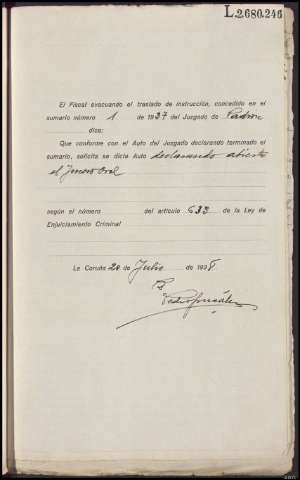 L.2.680.246
El Fiscal evacuando el traslado de instrucción, concedido en el
sumario número 1 de 1937 del Juzgado de Padrón
dice:
Que conforme con el Auto del Juzgado declarando terminado el
sumario, solicita se dicte Auto declarando abierto
el Juicio Oral
según el número del artículo 633 de la Ley de
Enjuiciamiento Criminal
La Coruña 20 de Julio de 1938